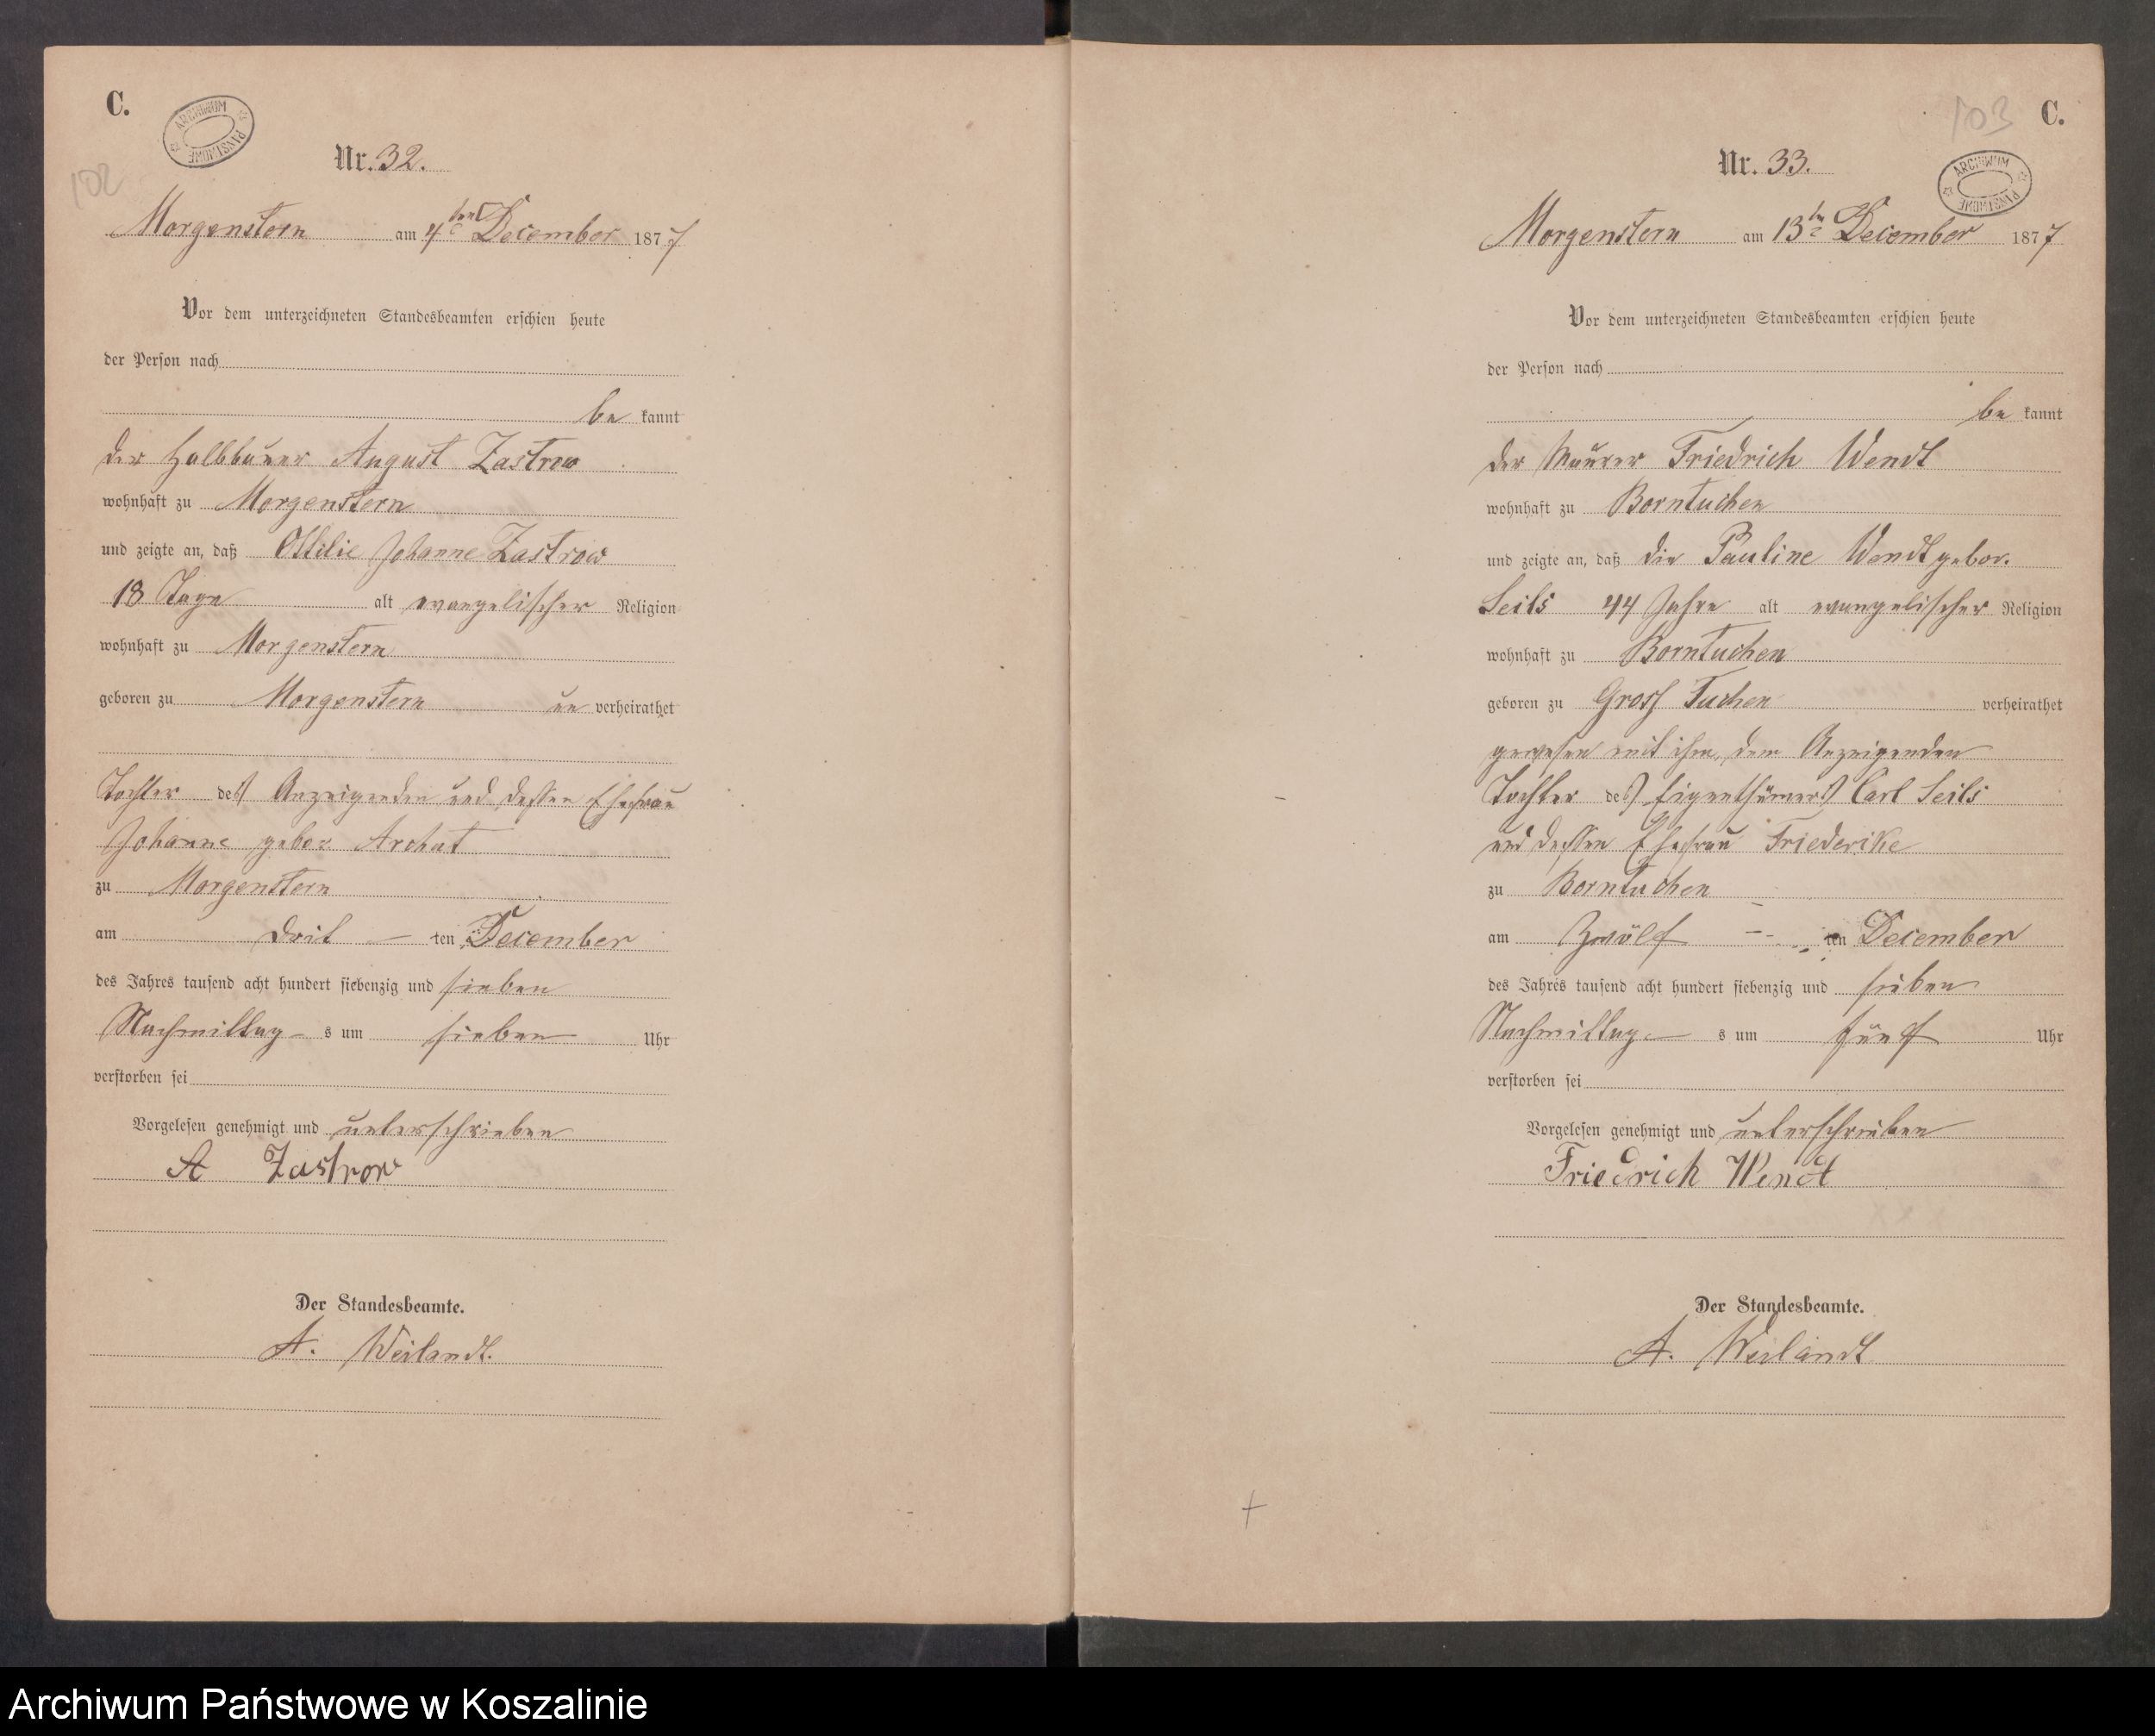 C.
ARCHIWUM PAŃSTWOWE
102
Nr. 32.
Morgenstern am 4ten December 1877
Vor dem unterzeichneten Standesbeamten erschien heute
der Person nach
be kannt
der Halbbauer August Zastrow
wohnhaft zu Morgenstern
und zeigte an, daß Ottilie Johanne Zastrow
18 Tage alt evangelischer Religion
wohnhaft zu Morgenstern
geboren zu Morgenstern un verheirathet
Tochter des Anzeigenden und dessen Ehefrau
Johanne gebor
zu Morgenstern
am drit – ten December
des Jahres tausend acht hundert siebenzig und sieben
Nachmittag – s um sieben Uhr
verstorben sei
Vorgelesen genehmigt und unterschrieben
A Zastrow
Der Standesbeamte.
A. Weilandt.
103
C.
ARCHIWUM PAŃSTWOWE
Nr. 33.
Morgenstern am 13ten December 1877
Vor dem unterzeichneten Standesbeamten erschien heute
der Person nach
be kannt
der Maurer Friedrich Wendt
wohnhaft zu Borntuchen
und zeigte an, daß die Pauline Wendt gebor.
Seils 44 Jahre alt evangelischer Religion
wohnhaft zu Borntuchen
geboren zu Gross Tuchen verheirathet
gewesen mit ihm, dem Anzeigenden
Tochter des Eigenthümers Carl Seils
und dessen Ehefrau Friederike
zu Borntuchen
am Zwölf – ten December
des Jahres tausend acht hundert siebenzig und sieben
Nachmittag – s um fünf Uhr
verstorben sei
Vorgelesen genehmigt und unterschrieben
Friedrich Wendt
Der Standesbeamte.
A. Weilandt
Archiwum Państwowe w Koszalinie